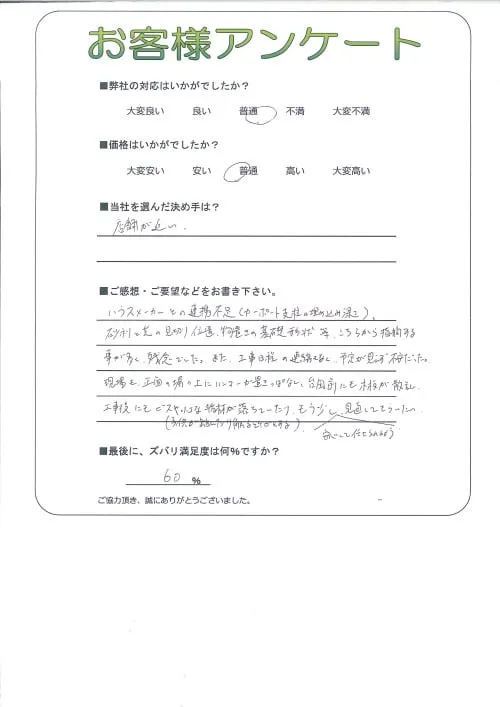 お客様アンケート
■弊社の対応はいかがでしたか？
大変良い　良い　普通　不満　大変不満
■価格はいかがでしたか？
大変安い　安い　普通　高い　大変高い
■当社を選んだ決め手は？
店舗が近い。
■ご感想・ご要望などをお書き下さい。
ハウスメーカーとの連携不足（カーポート支柱の埋め込み深さ）、
砂利と芝の見切り位置、物置きの基礎形状 等、こちらから指摘する
事が多く、残念でした。また、工事日程の連絡もなく、予定が見えず不便だった。
現場も、正面の塀の上にハンマーが置きっぱなし、台風前にも木板が散乱、
工事後にもビスや 端材が落ちていたり、もう少し見直してもらいたい。
60 %
■最後に、ズバリ満足度は何％ですか？
ご協力頂き、誠にありがとうございました。